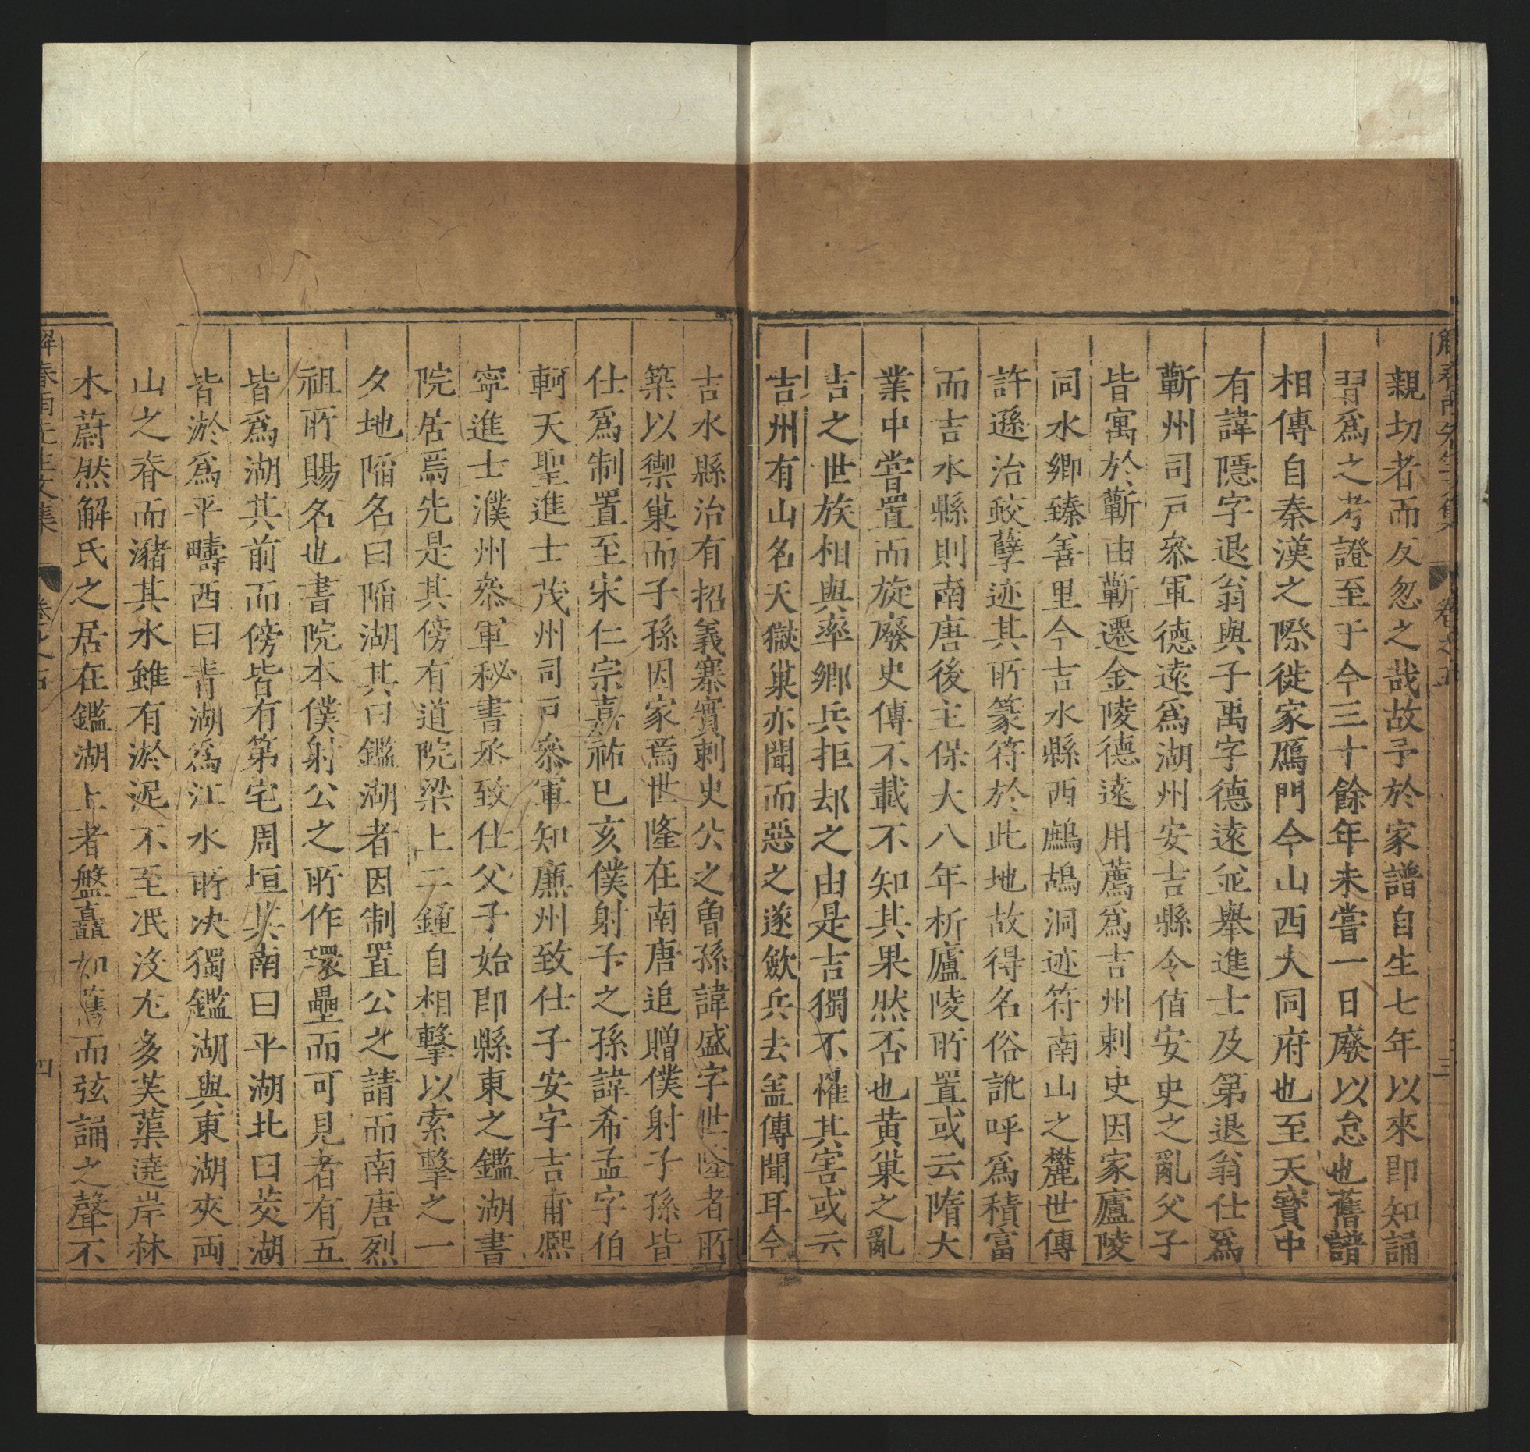 親切者而反忽之哉故予於家譜自生七年以來即知誦
習爲之考證至于今三十餘年未嘗一日廢以怠也舊譜
相傳自秦漢之際徙家鴈門今山西大同府也至天寶中
有諱隱字退翁與子禹字德遠並舉進士及第退翁仕爲
蘄州司戸叅軍德遠爲湖州安吉縣令值安史之亂父子
皆寓於蘄由蘄遷金陵德遠用薦爲吉州刺史因家廬陵
同水鄉臻善里今吉水縣西鷓鴣洞迹符南山之麓世傳
許遜治蛟孽迹其所篆符於此地故得名俗訛呼爲積富
而吉水縣則南唐後主保大八年析廬陵所置或云隋大
業中嘗置而旋廢史傳不載不知其果然否也黄巢之亂
吉之世族相與率鄉兵拒却之由是吉獨不罹其害或云
吉州有山名天獄巢亦聞而惡之遂歛兵去盖傳聞耳今
吉水縣治有招義寨實刺史公之魯孫諱盛字世隆者所
築以禦巢而子孫因家焉世隆在南唐追贈僕射子孫皆
仕爲制置至宋仁宗嘉祐已亥僕射子之孫諱希孟字伯
軻天聖進士茂州司戸叅軍知廉州致仕子安字吉甫熈
寧進士濮州叅軍秘書丞致仕父子始即縣東之鑑湖書
院居焉先是其傍有道院梁上二鐘自相擊以索擊之一
夕地陷名曰陷湖其曰鑑湖者因制置公之請而南唐烈
祖所賜名也書院本僕射公之所作環壘而可見者有五
皆爲湖其前而傍皆有第宅周垣其南曰平湖北曰茭湖
皆淤爲平疇西曰青湖爲江水所决獨鑑湖與東湖夾両
山之脊而瀦其水雖有淤泥不至泯没尤多芙蕖遶岸林
木蔚然解氏之居在鑑湖上者盤矗如舊而弦誦之聲不
解春雨先生文集
卷之五
四